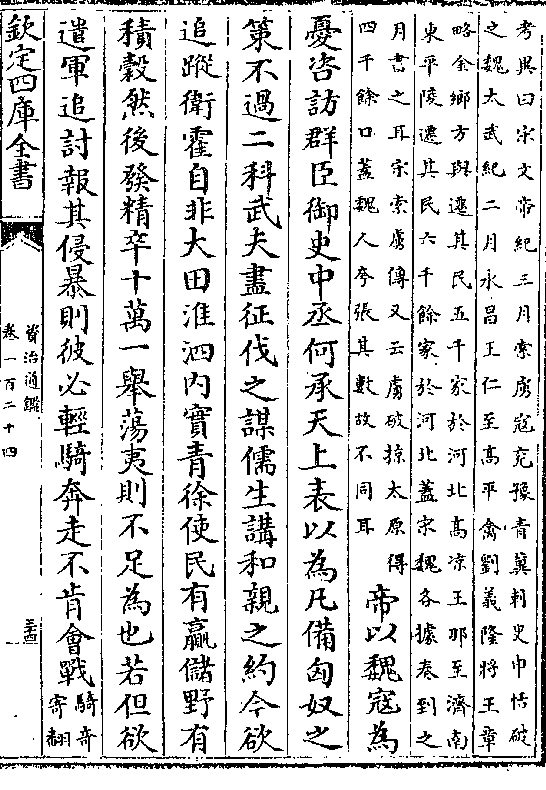 考異曰宋文帝紀三月索虜寇兗豫青冀刺史申恬破
之魏太武紀二月永昌王仁至高平禽劉義隆將王章
略金鄉方與遷其民五千家於河北高涼王那至濟南
東平陵遷其民六千餘家於河北蓋宋魏各據奏到之
月書之耳宋索虜傳又云虜破掠太原得
四千餘口蓋魏人夸張其數故不同耳
帝以魏寇為
憂咨訪群臣御史中丞何承天上表以為凡備匈奴之
策不過二科武夫盡征伐之謀儒生講和親之約今欲
追蹤衛霍自非大田淮泗內實青徐使民有贏儲野有
積穀然後發精卒十萬一舉蕩夷則不足為也若但欲
遣軍追討報其侵暴則彼必輕騎奔走不肯會戰
騎奇
寄翻
欽定四庫全書
資治通鑑
卷一百二十四